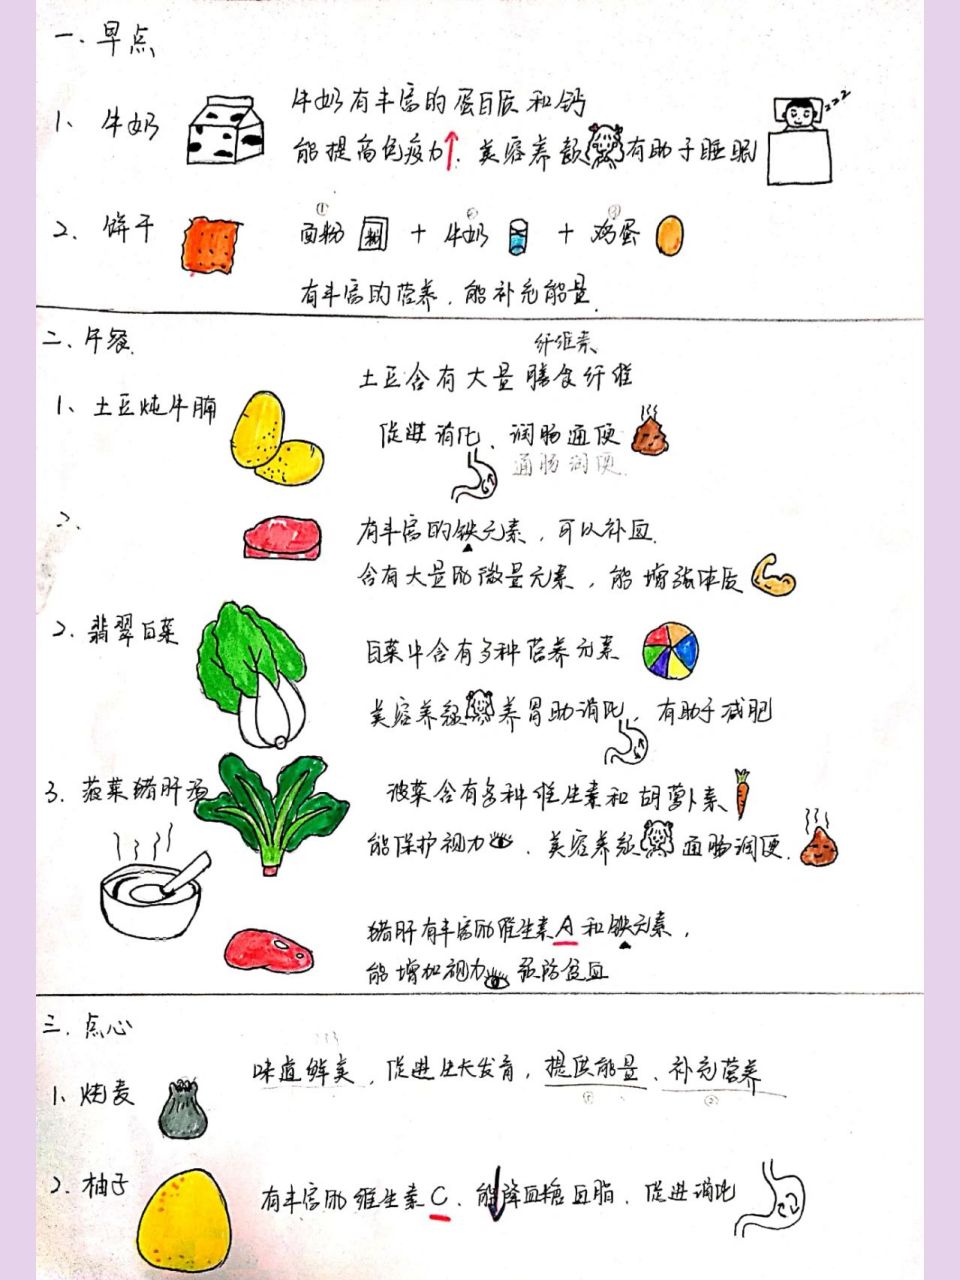 一、早点
1、牛奶
牛奶有丰富的蛋白质和钙
能提高免疫力、美容养颜 有助于睡眠
zzz
2、饼干
① ② ③
面粉 + 牛奶 + 鸡蛋
有丰富的营养，能补充能量
二、午餐
纤维素
土豆含有大量膳食纤维
1、土豆炖牛腩
促进消化、润肠通便
通肠润便
2.
有丰富的铁元素，可以补血.
含有大量的微量元素，能增强体质
2、翡翠白菜
白菜中含有多种营养元素
美容养颜 养胃助消化，有助于减肥
3、菠菜猪肝汤
菠菜含有多种维生素和胡萝卜素
能保护视力、美容养颜 通肠润便.
猪肝有丰富的维生素A和铁元素，
能增加视力 预防贫血
三、点心
1、烧麦
味道鲜美，促进生长发育，提供能量、补充营养
① ②
2、柚子
有丰富的维生素C、能降血糖血脂、促进消化